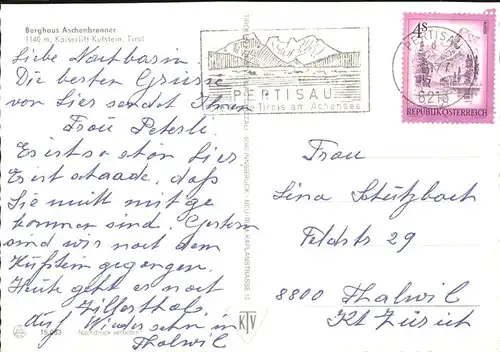 Berghaus Aschenbrenner
1140 m, Kaiserlift Kufstein, Tirol
Liebe Nachbarin
Die besten Grüsse
von hier sendet Ihnen
Frau Peterli
Es ist so schön hier
Es ist schade, daß
Sie nicht mitge
kommen sind. Gestern
sind wir nach dem
Küfstein gegangen.
Heute geht es nach
Zillerthal.
Auf Wiedersehn in
Thalwil
15.063
Nachdruck verboten
PERTISAU
Tirols am Achensee
INNSBRUCK
KAPLANSTRASSE 10
KTV
PERTISAU
6213
4S
REPUBLIK ÖSTERREICH
Frau
Lina Schützbach
Feldstr 29
8800 Thalwil
Kt Zürich